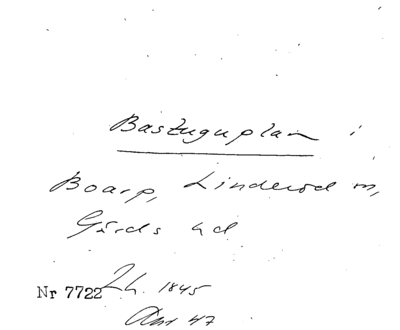 Bastuguplan i
Boarp, Linderöd sn,
Gärds hd
Nr 7722 Lh. 1845
47